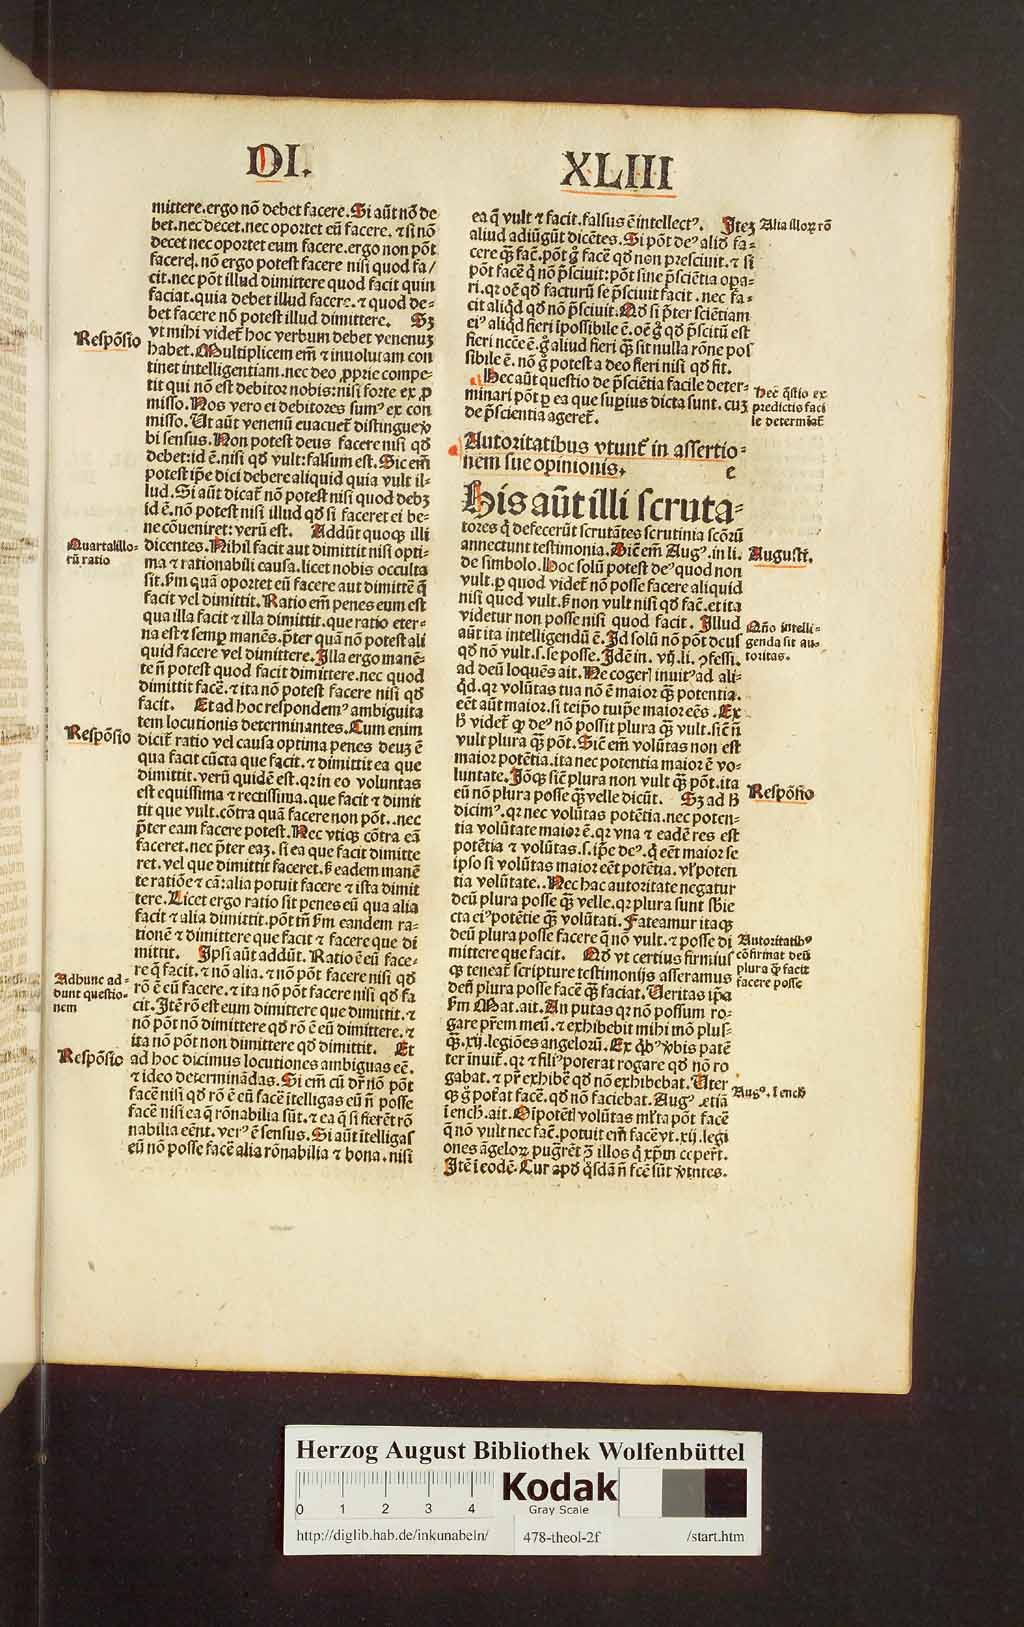 DI.
XLIII
mittere.ergo nō debet facere.Si aūt nō de
bet.nec decet.nec oportet eū facere.⁊ si nō
decet nec oportet eum facere.ergo non pōt
facere. nō ergo potest facere nisi quod fa/
cit.nec pōt illud dimittere quod facit quin
faciat.quia debet illud facere.⁊ quod de-
bet facere nō potest illud dimittere. Sꝫ
Respōsio
vt mihi videt̄ hoc verbum debet venenuꝫ
habet.Multiplicem em̄ ⁊ inuolutam con
tinet intelligentiam.nec deo ꝓprie compe-
tit qui nō est debitor nobis:nisi forte ex ꝓ
misso.Nos vero ei debitores sumꝰ ex con
misso.Ut aūt venenū euacuet̄ distingue ꝟ
bi sensus.Non potest deus facere nisi qđ
debet:id ē.nisi qđ vult:falsum est.Sic em̄
potest ip̄e dici debere aliquid quia vult il-
lud.Si aūt dicat̄ nō potest nisi quod debꝫ
id ē.nō potest nisi illud qđ si faceret ei be-
ne cōueniret:verū est. Addūt quoqꝫ illi
Quarta illo-
rū ratio
dicentes.Nihil facit aut dimittit nisi opti-
ma ⁊ rationabili causa.licet nobis occulta
sit.ẜm quā oportet eū facere aut dimitte q̄
facit vel dimittit.Ratio em̄ penes eum est
qua illa facit ⁊ illa dimittit.que ratio eter-
na est ⁊ semꝑ manēs.p̄ter quā nō potest ali
quid facere vel dimittere.Illa ergo manē-
te n̄ potest quod facit dimittere.nec quod
dimittit facē.⁊ ita nō potest facere nisi qđ
facit. Et ad hoc respondemꝰ ambiguita
Respōsio
tem locutionis determinantes.Cum enim
dicit̄ ratio vel causa optima penes deuꝫ ē
qua facit cūcta que facit.⁊ dimittit ea que
dimittit.verū quidē est.qꝛ in eo voluntas
est equissima ⁊ rectissima.que facit ⁊ dimit
tit que vult.cōtra quā facere non pōt..nec
p̄ter eam facere potest.Nec vtiqꝫ cōtra eā
faceret.nec p̄ter eaꝫ.si ea que facit dimitte
ret.vel que dimittit faceret.ẜ eadem manē
te ratiōe ⁊ cā:alia potuit facere ⁊ ista dimit
tere.Licet ergo ratio sit penes eū qua alia
facit ⁊ alia dimittit.pōt tn̄ ẜm eandem ra-
tionē ⁊ dimittere que facit ⁊ facere que di
mittit. Ipsi aūt addūt.Ratio ē eū face-
Adhunc ad-
dunt questio-
nem
re q̄ facit.⁊ nō alia.⁊ nō pōt facere nisi qđ
rō ē eū facere.⁊ ita nō pōt facere nisi qđ fa
cit.Itē rō est eum dimittere que dimittit.⁊
nō pōt nō dimittere qđ rō ē eū dimittere.⁊
ita nō pōt non dimittere qđ dimittit. Et
Respōsio
ad hoc dicimus locutiones ambiguas eē.
⁊ ideo determinādas.Si em̄ cū dr̄ nō pōt
facē nisi qđ rō ē eū facē itelligas eū n̄ posse
facē nisi ea q̄ rōnabilia sūt.⁊ ea q̄ si fierēt rō
nabilia eēnt.verꝰ ē sensus.Si aūt itelligas
eū nō posse facē alia rōnabilia ⁊ bona.nisi
ea q̄ vult ⁊ facit.falsus ē intellectꝰ. Iteꝫ
Alia illoꝝ rō
aliud adiūgūt dicētes.Si pōt deꝰ aliđ fa-
cere q̄ꝫ fac̄.pōt ḡ facē qđ non presciuit.⁊ si
pōt facē q̄ nō p̄sciuit:pōt sine p̄sciētia opa-
ri.qꝛ oē qđ facturū se p̄sciuit facit.nec fa-
cit aliqđ qđ nō p̄sciuit.Qđ si p̄ter sciētiam
eiꝰ aliqđ fieri ipossibile ē.oē ḡ qđ p̄scitū est
fieri ncēe ē.ḡ aliud fieri q̄ꝫ sit nulla rōne pos
sibile ē. nō ḡ potest a deo fieri nisi qđ fit.
Hec aūt questio de p̄sciētia facile deter-
Hec q̄stio ex
predictio faci
le determiat̄
minari pōt ꝑ ea que suꝑius dicta sunt.cuꝫ
de p̄scientia ageret̄.
Autoritatibus vtunt̄ in assertio-
nem sue opinionis. e
His aūt illi scruta-
tores q̄ defecerūt scrutātes scrutinia scōrū
annectunt testimonia.Dic̄ em̄ Augꝰ.in li.
August̄.
de simbolo.Hoc solū potest deꝰ quod non
vult.ꝑ quod videt̄ nō posse facere aliquid
nisi quod vult.ẜ non vult nisi qđ fac̄.et ita
videtur non posse nisi quod facit. Illud
Quō intelli-
genda sit au-
toritas.
aūt ita intelligendū ē.Id solū nō pōt deus
qđ nō vult.s.se posse.Idē in.vij.li.ꝯfessi.
ad deū loquēs ait.Ne cogeris inuitꝰ ad ali-
q̄d.qꝛ volūtas tua nō ē maior q̄ꝫ potentia.
eēt aūt maior.si teip̄o tuip̄e maior eēs.Ex
ħ videt̄ ꝙ deꝰ nō possit plura q̄ꝫ vult.sic̄ n̄
vult plura q̄ꝫ pōt.Sic̄ em̄ volūtas non est
maior potētia.ita nec potentia maior ē vo-
luntate.Iōqꝫ sic̄ plura non vult q̄ꝫ pōt.ita
eū nō plura posse q̄ꝫ velle dicūt. Sꝫ ad ħ
Respōsio
dicimꝰ.qꝛ nec volūtas potētia.nec poten-
tia volūtate maior ē.qꝛ vna ⁊ eadē res est
potētia ⁊ volūtas.s.ip̄e deꝰ.q̄ eēt maior se
ipso si volūtas maior eēt potētia.vl̓ poten
tia volūtate..Nec hac autoritate negatur
deū plura posse q̄ꝫ velle.qꝛ plura sunt sƀie
cta eiꝰ potētie q̄ꝫ volūtati.Fateamur itaqꝫ
deū plura posse facere q̄ nō vult.⁊ posse di
Autoritatibꝰ
cōfirmat deū
plura q̄ꝫ facit
facere posse
mittere que facit. Qđ vt certius firmiusꝰ
qꝫ teneat̄ scripture testimonijs asseramus
deū plura posse facē q̄ꝫ faciat.Ueritas ip̄a
ẜm Mat.ait.An putas qꝛ nō possum ro-
gare pr̄em meū.⁊ exhibebit mihi mō plus-
q̄ꝫ.xij.legiōes angelorū.Ex qƀꝰ ꝟbis patē
ter inuit̄.qꝛ ⁊ filiꝰ poterat rogare qđ nō ro
gabat.⁊ pr̄ exhibē qđ nō exhibebat.Uter
qꝫ ḡ pot̄at facē.qđ nō faciebat.Augꝰ etiā
Augꝰ.i ench̄
i ench̄.ait.Oīpotētis volūtas ml̓ta pōt facē
q̄ nō vult nec fac̄.potuit em̄ facē vt.xij.legi
ones āgeloꝝ pugr̄ent ꝯ̄ illos q̄ xp̄m ceper̄t.
Itē i eodē.Cur apđ q̄sdā n̄ fc̄e sūt ꝟtutes.
Herzog August Bibliothek Wolfenbüttel
0 1 2 3 4
Kodak
Gray Scale
http://diglib.hab.de/inkunabeln/ 478-theol-2f /start.htm